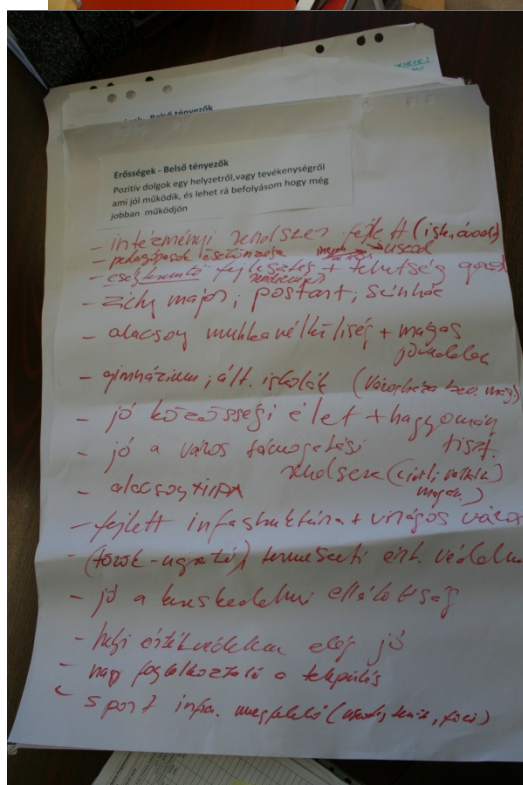 Belső tényezők
Erősségek - Belső tényezők
Pozitív dolgok egy helyzetről,vagy tevékenységről
ami jól működik, és lehet rá befolyásom hogy még
jobban működjön
- intézményi rendszer fejlett (isk, óvoda)
- pedagógusok
fejlesztés + tehetség
- zichy major; postart; színház
- alacsony munkanélküliség + magas
jövedelem
- gimnázium; ált. iskolák (városháza
- jó közösségi élet + hagyomány
tiszt.
- jó a város támogatási
rendszere (civil;
- alacsony HIPA
- fejlett infrastruktúra + virágos város
- (török-ugrató) természeti ért. védelme
- jó a kereskedelmi ellátottság
- helyi értékvédelem elég jó
- nagy foglalkoztató a település
- sport infra. megfelelő (uszoda, tenisz, foci)